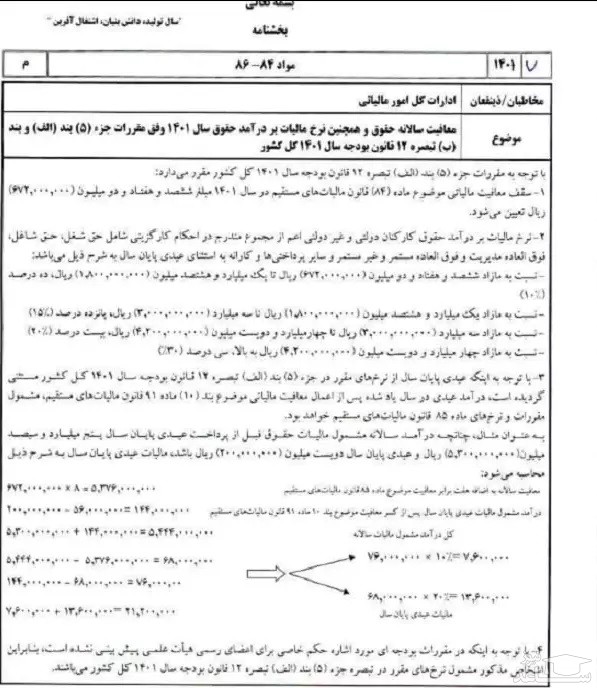 بسمه تعالی
بخشنامه
"سال تولید، دانش بنیان، اشتغال آفرین"
۱۴۰۱
مواد ۸۴- ۸۶
م
مخاطبان/ذینفعان
ادارات کل امور مالیاتی
موضوع
معافیت سالانه حقوق و همچنین نرخ مالیات بر درآمد حقوق سال ۱۴۰۱ وفق مقررات جزء (۵) بند (الف) و بند
(ب) تبصره ۱۲ قانون بودجه سال ۱۴۰۱ کل کشور
با توجه به مقررات جزء (۵) بند (الف) تبصره ۱۲ قانون بودجه سال ۱۴۰۱ کل کشور مقرر می‌دارد:
۱- سقف معافیت مالیاتی موضوع ماده (۸۴) قانون مالیات‌های مستقیم در سال ۱۴۰۱ مبلغ ششصد و هفتاد و دو میلیون (۶۷۲,۰۰۰,۰۰۰)
ریال تعیین می‌شود.
۲- نرخ مالیات بر درآمد حقوق کارکنان دولتی و غیر دولتی اعم از مجموع مندرج در احکام کارگزینی شامل حق شغل، حق شاغل،
فوق العاده مدیریت و فوق العاده مستمر و غیر مستمر و سایر پرداختی‌ها و کارانه به استثنای عیدی پایان سال به شرح ذیل می‌باشد:
-نسبت به مازاد ششصد و هفتاد و دو میلیون (۶۷۲,۰۰۰,۰۰۰) ریال تا یک میلیارد و هشتصد میلیون (۱,۸۰۰,۰۰۰,۰۰۰) ریال، ده درصد
(۱۰٪)
-نسبت به مازاد یک میلیارد و هشتصد میلیون (۱,۸۰۰,۰۰۰,۰۰۰) ریال تا سه میلیارد (۳,۰۰۰,۰۰۰,۰۰۰) ریال، پانزده درصد (۱۵٪)
-نسبت به مازاد سه میلیارد (۳,۰۰۰,۰۰۰,۰۰۰) ریال تا چهارمیلیارد و دویست میلیون (۴,۲۰۰,۰۰۰,۰۰۰) ریال، بیست درصد (۲۰٪)
-نسبت به مازاد چهار میلیارد و دویست میلیون (۴,۲۰۰,۰۰۰,۰۰۰) ریال به بالا، سی درصد (۳۰٪)
۳- با توجه به اینکه عیدی پایان سال از نرخ‌های مقرر در جزء (۵) بند (الف) تبصره ۱۲ قانون بودجه سال ۱۴۰۱ کل کشور مستثنی
گردیده است، درآمد عیدی در سال یاد شده پس از اعمال معافیت مالیاتی موضوع بند (۱۰) ماده ۹۱ قانون مالیات‌های مستقیم، مشمول
مقررات و نرخ‌های ماده ۸۵ قانون مالیات‌های مستقیم خواهد بود.
به عنوان مثال، چنانچه درآمد سالانه مشمول مالیات حقوق قبل از پرداخت عیدی پایان سال پنج میلیارد و سیصد
میلیون(۵,۳۰۰,۰۰۰,۰۰۰) ریال و عیدی پایان سال دویست میلیون (۲۰۰,۰۰۰,۰۰۰) ریال باشد، مالیات عیدی پایان سال به شرح ذیل
محاسبه می‌شود:
معافیت سالانه به اضافه هفت برابر معافیت موضوع ماده ۸۵ قانون مالیات‌های مستقیم ۶۷۲,۰۰۰,۰۰۰ × ۸ = ۵,۳۷۶,۰۰۰,۰۰۰
درآمد مشمول مالیات عیدی پایان سال، پس از کسر معافیت موضوع بند ۱۰ ماده ۹۱ قانون مالیات‌های مستقیم ۲۰۰,۰۰۰,۰۰۰ - ۵۶,۰۰۰,۰۰۰ = ۱۴۴,۰۰۰,۰۰۰
کل درآمد مشمول مالیات سالانه ۵,۳۰۰,۰۰۰,۰۰۰ + ۱۴۴,۰۰۰,۰۰۰ = ۵,۴۴۴,۰۰۰,۰۰۰
۵,۴۴۴,۰۰۰,۰۰۰ - ۵,۳۷۶,۰۰۰,۰۰۰ = ۶۸,۰۰۰,۰۰۰
۷۶,۰۰۰,۰۰۰ × ۱۰٪ = ۷,۶۰۰,۰۰۰
۱۴۴,۰۰۰,۰۰۰ - ۶۸,۰۰۰,۰۰۰ = ۷۶,۰۰۰,۰۰۰
۶۸,۰۰۰,۰۰۰ × ۲۰٪ = ۱۳,۶۰۰,۰۰۰
۷,۶۰۰,۰۰۰ + ۱۳,۶۰۰,۰۰۰ = ۲۱,۲۰۰,۰۰۰
مالیات عیدی پایان سال
۴- با توجه به اینکه در مقررات بودجه ای مورد اشاره حکم خاصی برای اعضای رسمی هیأت علمی پیش بینی نشده است، بنابراین
اشخاص مذکور مشمول نرخ‌های مقرر در تبصره جزء (۵) بند (الف) تبصره ۱۲ قانون بودجه سال ۱۴۰۱ کل کشور می‌باشند.